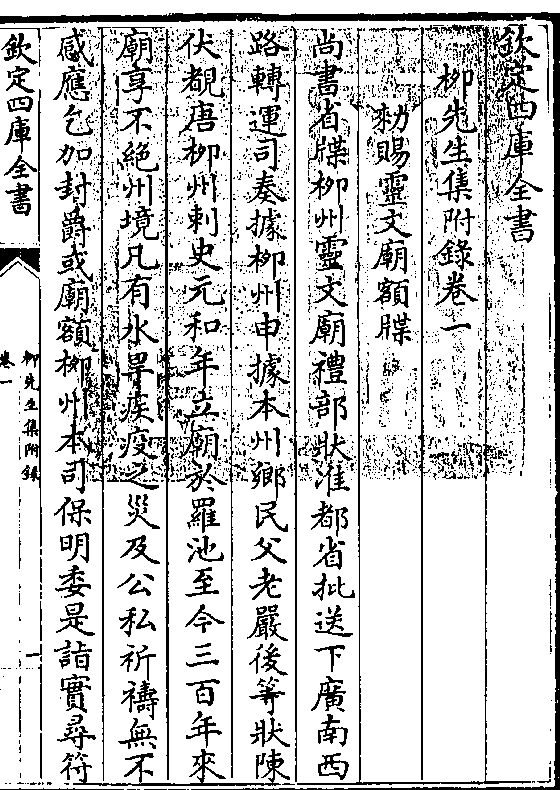 欽定四庫全書
柳先生集附錄卷一
勑賜靈文廟額牒
尚書省牒柳州靈文廟禮部狀准都省批送下廣南西
路轉運司奏據柳州申據本州鄉民父老嚴後等狀陳
伏覩唐柳州刺史元和年立廟於羅池至今三百年來
廟享不絕州境凡有水旱疾疫之災及公私祈禱無不
感應乞加封爵或廟額柳州本司保明委是詣實尋符
欽定四庫全書
柳先生集附錄
卷一
一